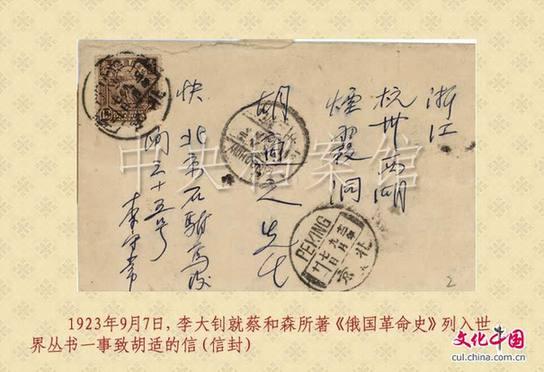 浙江
杭州西湖
煙霞洞
胡適之先生
快 北京石駙馬後
閘三十五号
李守常
PEKING
北京
中央档案馆
2
1923年9月7日,李大钊就蔡和森所著《俄国革命史》列入世
界丛书一事致胡适的信(信封)
文化中国
cul.china.com.cn